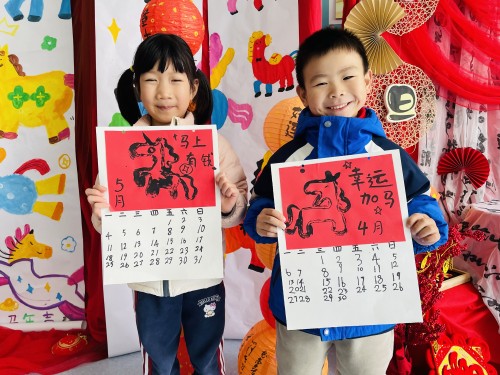 马上
有钱
5
月
一 二 三 四 五 六 日
1 2 3
4 5 6 7 8 9 10
11 12 13 14 15 16 17
18 19 20 21 22 23 24
25 26 27 28 29 30 31
幸运
加马
4月
一 二 三 四 五 六 日
1 2 3 4 5
6 7 8 9 10 11 12
13 14 15 16 17 18 19
20 21 22 23 24 25 26
27 28 29 30